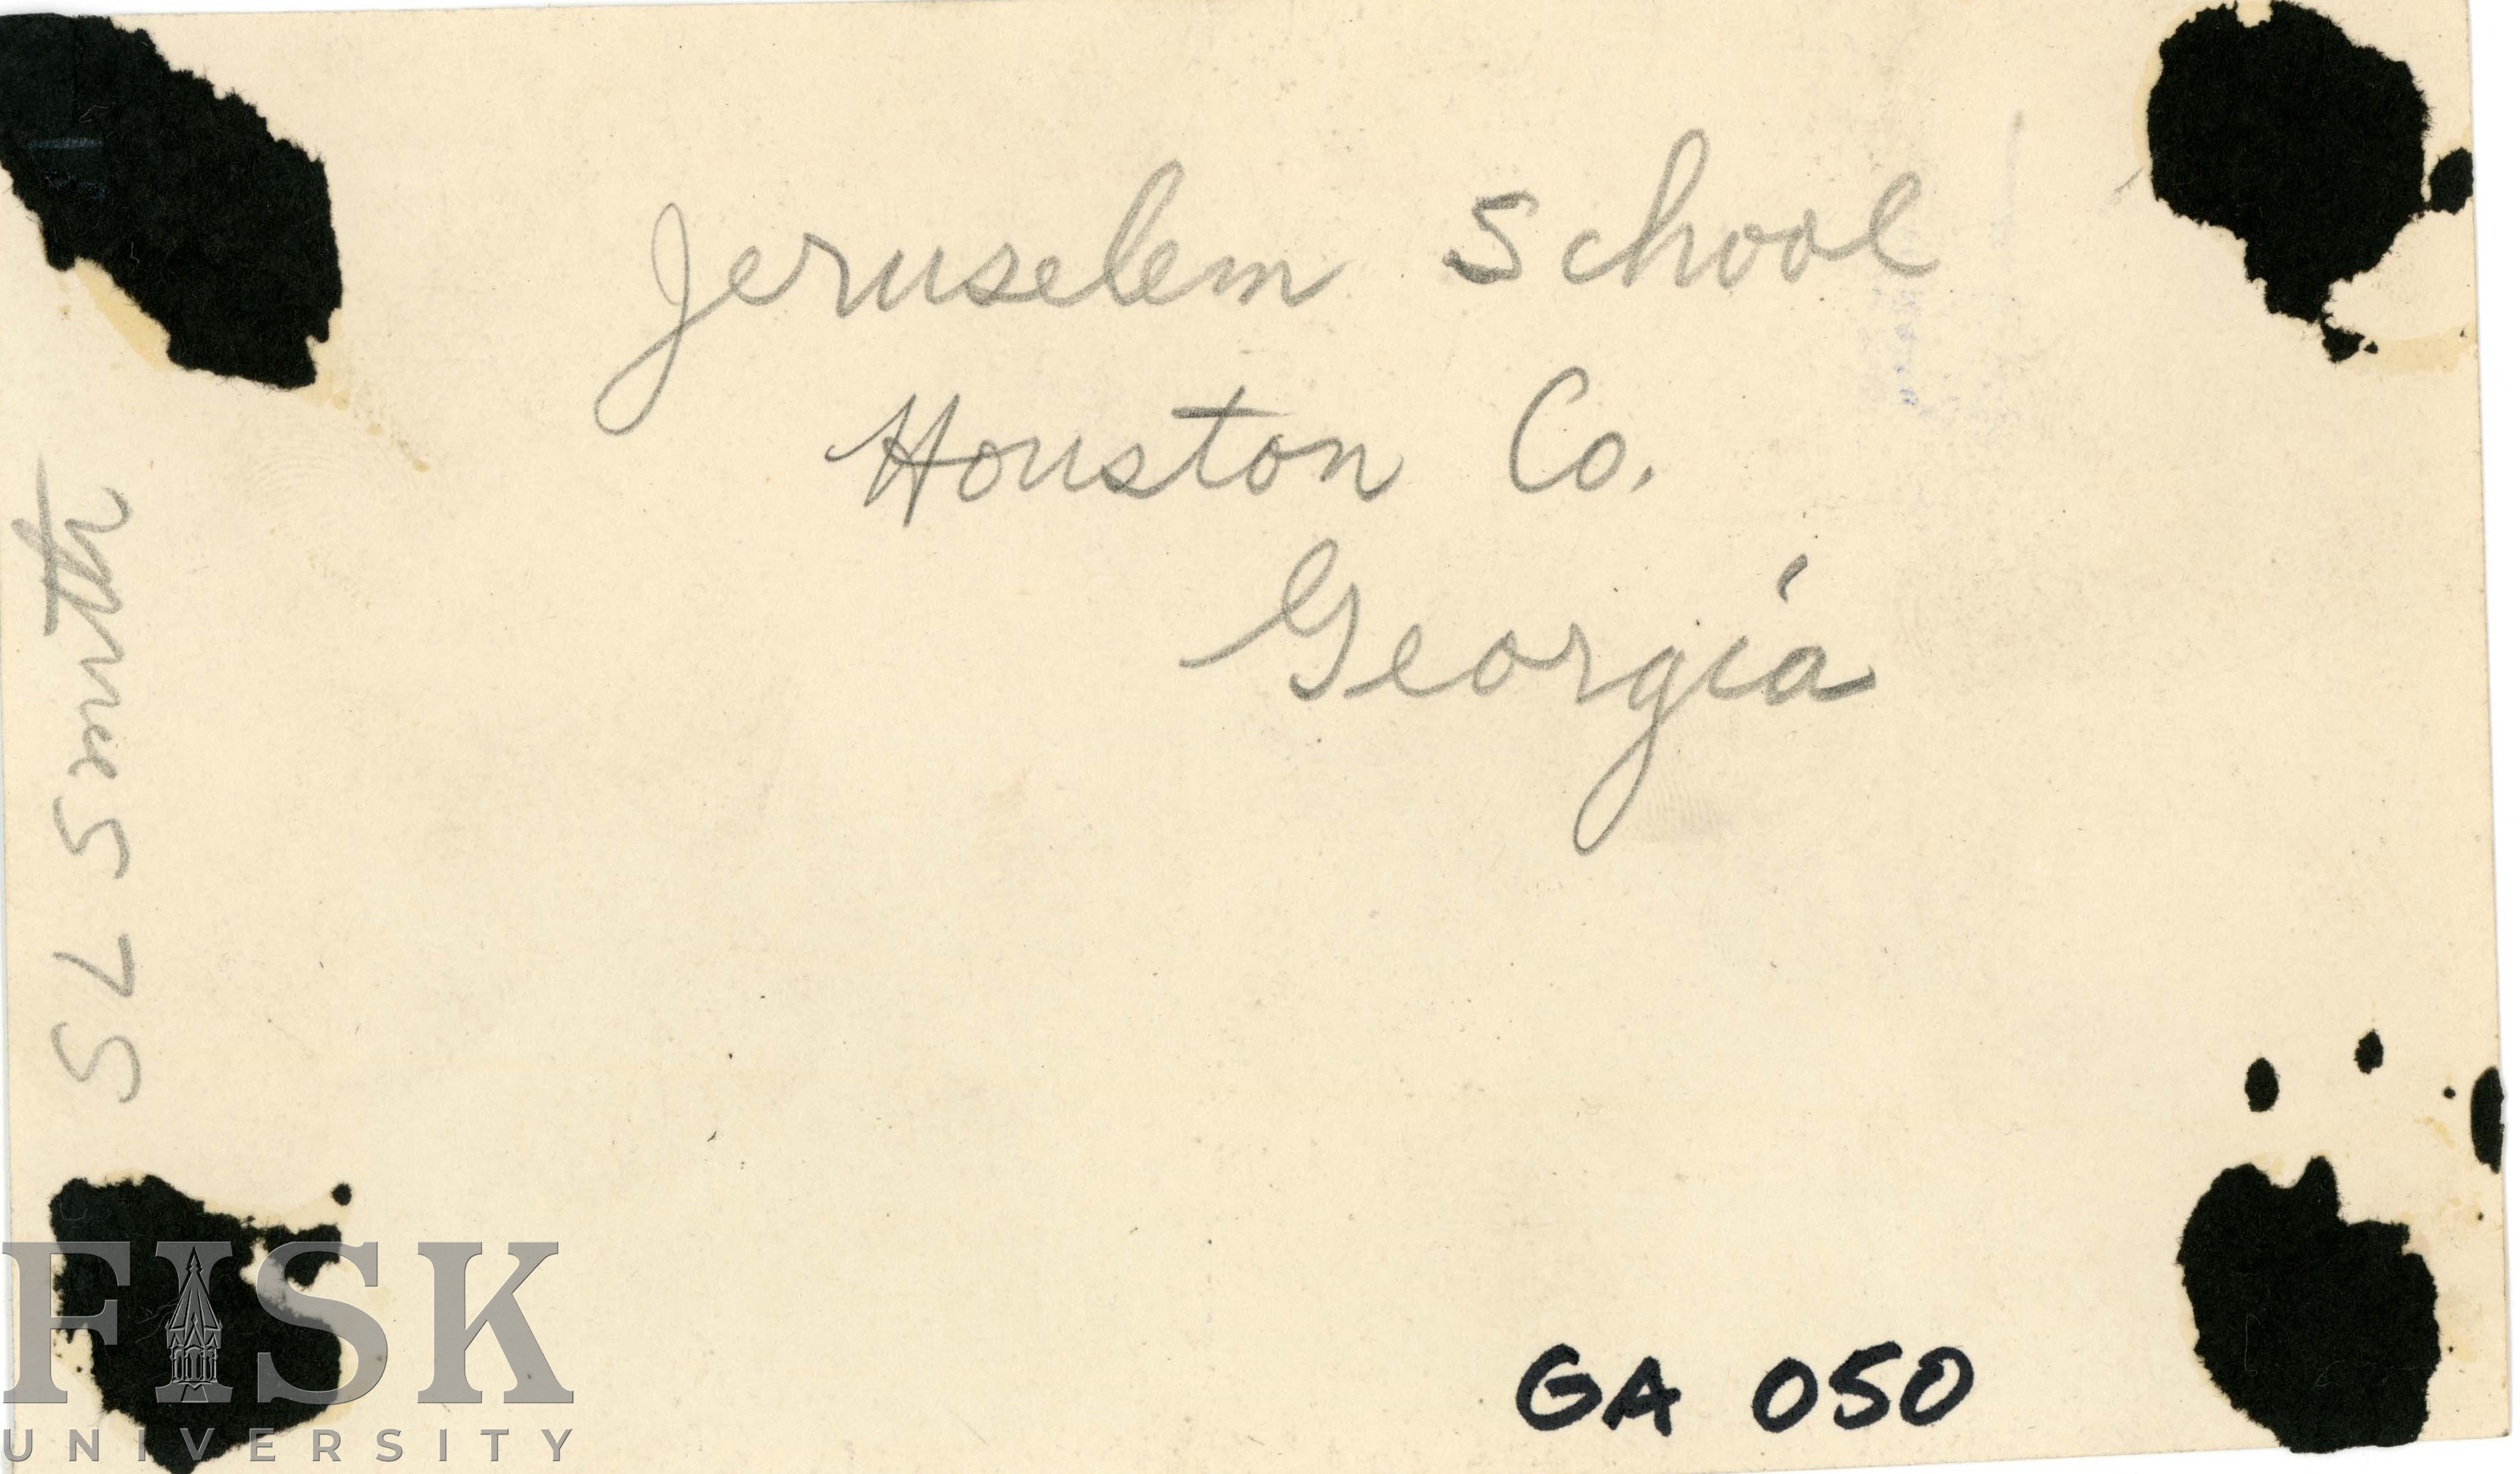 Jeruselem School
Houston Co.
Georgia
575
GA 050
FISK
UNIVERSITY